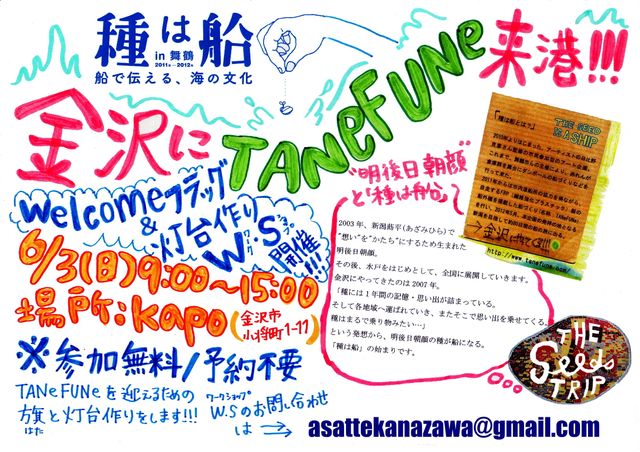 種は船
in 舞鶴
2011年-2012年
船で伝える、海の文化
金沢に TANeFUNe 来港!!!
Welcomeフラッグ
&
灯台作り
W.S
開催!!!
6/3(日)9:00〜15:00
場所:kapo
(金沢市
小将町1-11)
※参加無料/予約不要
TANeFUNeを迎えるための
旗と灯台作りをします!!!
はた
ワークショップ
W.Sのお問い合わせ
は→
asattekanazawa@gmail.com
"明後日朝顔"
と「種は船」
2003年、新潟莇平(あざみひら)で
"想い"を"かたち"にするため生まれた
明後日朝顔。
その後、水戸をはじめとして、全国に展開していきます。
金沢にやってきたのは2007年。
「種には1年間の記憶・思い出が詰まっている。
そして各地域へ運ばれていき、またそこで思い出を乗せてくる。
種はまるで乗り物みたい…」
という発想から、明後日朝顔の種が船になる。
「種は船」の始まりです。
「種は船とは?」
THE SEED
IS A SHIP
→金沢に
http://www.tanefune.com/
THE
Seeds
TRIP